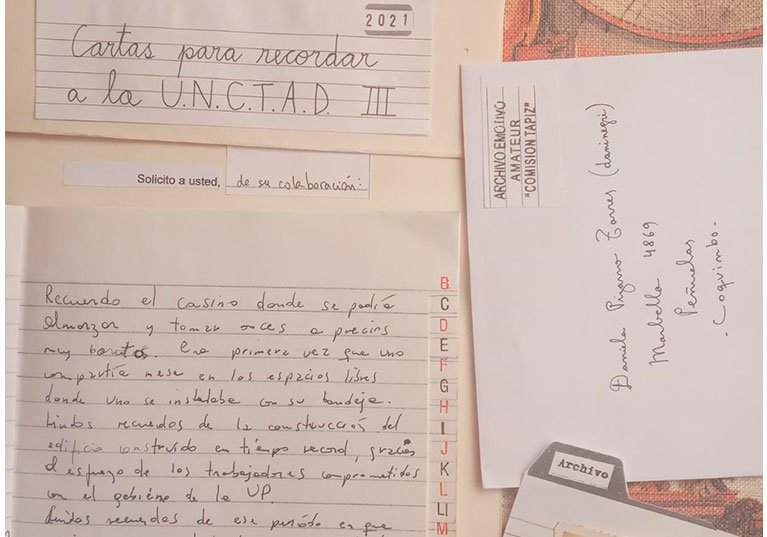 2021
Cartas para recordar
a la U.N.C.T.A.D. III
Solicito a usted, de su colaboración:
Recuerdo el casino donde se podía
almorzar y tomar onces a precios
muy baratos. Era primera vez que uno
compartía mesa en los espacios libres
donde uno se instalaba con su bandeja.
Lindos recuerdos de la construcción del
edificio construido en tiempo record, gracias
al esfuerzo de los trabajadores comprometidos
con el gobierno de la UP.
Lindos recuerdos de ese período en que
B
C
D
E
F
G
H
I
J
K
L
Ll
M
ARCHIVO EMOTIVO
AMATEUR
"COMISION TAPIZ"
Daniela Pizarro Torres (daninegri)
Marbella 4869
Peñuelas
- Coquimbo -
Archivo